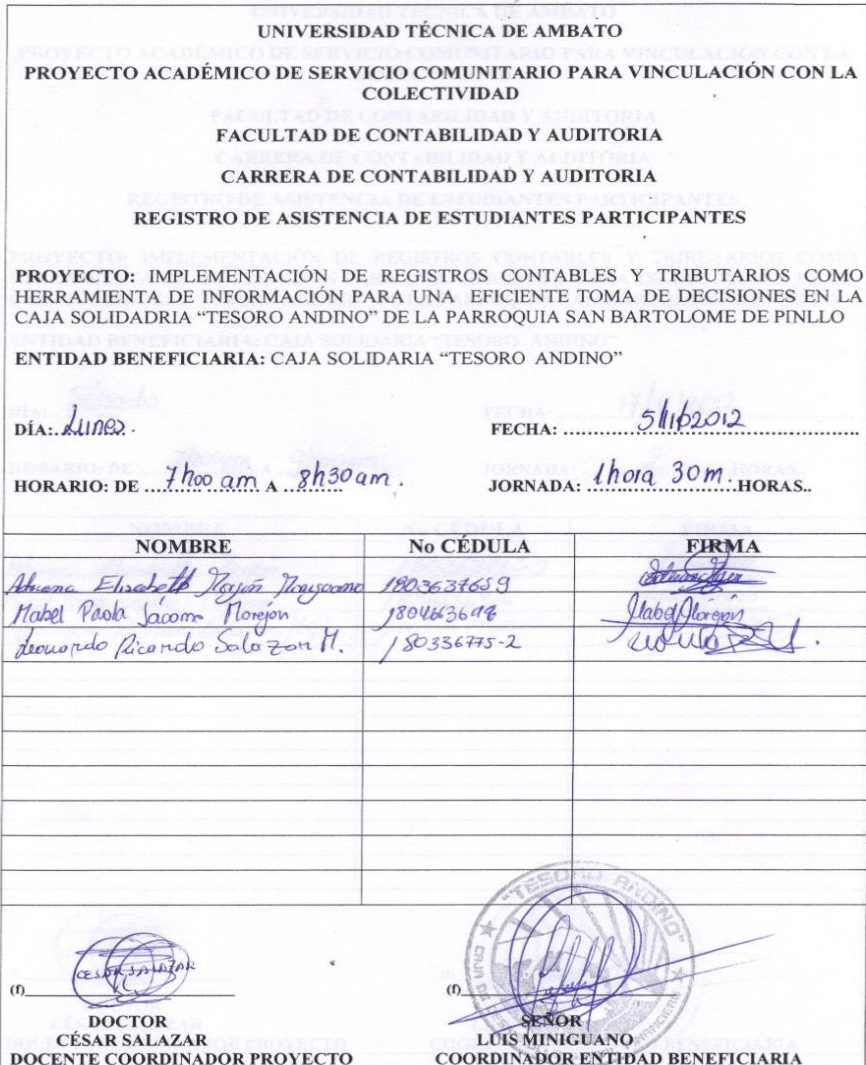 UNIVERSIDAD TÉCNICA DE AMBATO
PROYECTO ACADÉMICO DE SERVICIO COMUNITARIO PARA VINCULACIÓN CON LA
COLECTIVIDAD
FACULTAD DE CONTABILIDAD Y AUDITORIA
CARRERA DE CONTABILIDAD Y AUDITORIA
REGISTRO DE ASISTENCIA DE ESTUDIANTES PARTICIPANTES
PROYECTO: IMPLEMENTACIÓN DE REGISTROS CONTABLES Y TRIBUTARIOS COMO
HERRAMIETA DE INFORMACIÓN PARA UNA EFICIENTE TOMA DE DECISIONES EN LA
CAJA SOLIDADRIA "TESORO ANDINO" DE LA PARROQUIA SAN BARTOLOME DE PINLLO
ENTIDAD BENEFICIARIA: CAJA SOLIDARIA "TESORO ANDINO"
DÍA: Lunes. FECHA: 5/11/2012
HORARIO: DE 7h00 am A 8h30 am. JORNADA: 1hora 30m. HORAS..
NOMBRE No CÉDULA FIRMA
Elisabeth 1803637659
Mabel Paola Jácome Morejón Mabel Morejón
Leonardo Ricardo Salazar M. 180336775-2
"TESORO ANDINO"
CESAR SALAZAR
(f) (f)
DOCTOR SEÑOR
CÉSAR SALAZAR LUIS MINIGUANO
DOCENTE COORDINADOR PROYECTO COORDINADOR ENTIDAD BENEFICIARIA